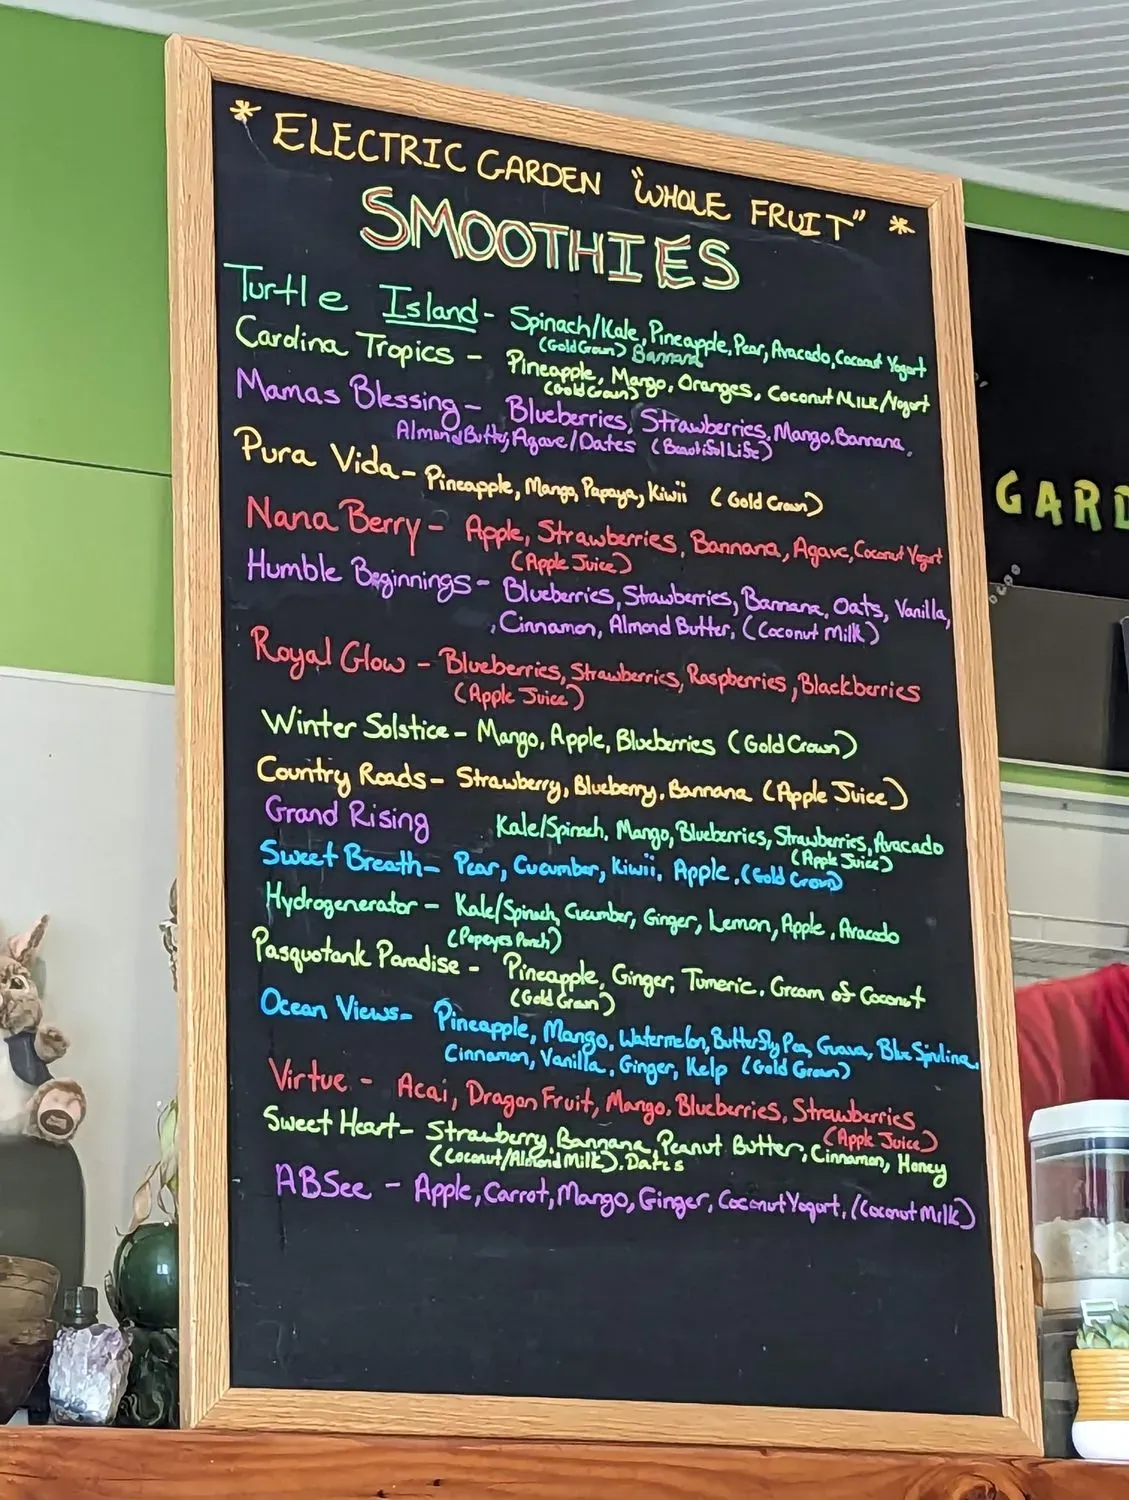 * ELECTRIC GARDEN "WHOLE FRUIT" *
SMOOTHIES
Turtle Island - Spinach/Kale, Pineapple, Pear, Avacado, Coconut Yogurt
(Gold Crown) Bannana
Carolina Tropics - Pineapple, Mango, Oranges, Coconut Milk/Yogurt
(Gold Crown)
Mamas Blessing - Blueberries, Strawberries, Mango, Bannana,
Almond Butter, Agave/Dates (Beautiful Life)
Pura Vida - Pineapple, Mango, Papaya, Kiwii (Gold Crown)
Nana Berry - Apple, Strawberries, Bannana, Agave, Coconut Yogurt
(Apple Juice)
Humble Beginnings - Blueberries, Strawberries, Bannana, Oats, Vanilla,
Cinnamon, Almond Butter, (Coconut Milk)
Royal Glow - Blueberries, Strawberries, Raspberries, Blackberries
(Apple Juice)
Winter Solstice - Mango, Apple, Blueberries (Gold Crown)
Country Roads - Strawberry, Blueberry, Bannana (Apple Juice)
Grand Rising Kale/Spinach, Mango, Blueberries, Strawberries, Avacado
(Apple Juice)
Sweet Breath - Pear, Cucumber, Kiwii, Apple, (Gold Crown)
Hydrogenerator - Kale/Spinach, Cucumber, Ginger, Lemon, Apple, Avacado
(Popeyes Punch)
Pasquotank Paradise - Pineapple, Ginger, Tumeric, Cream of Coconut
(Gold Crown)
Ocean Views - Pineapple, Mango, Watermelon, Butterfly Pea, Guava, Blue Spirulina,
Cinnamon, Vanilla, Ginger, Kelp (Gold Crown)
Virtue - Acai, Dragon Fruit, Mango, Blueberries, Strawberries
(Apple Juice)
Sweet Heart - Strawberry, Bannana, Peanut Butter, Cinnamon, Honey
(Coconut/Almond Milk), Dates
ABSee - Apple, Carrot, Mango, Ginger, Coconut Yogurt, (Coconut Milk)
GARD